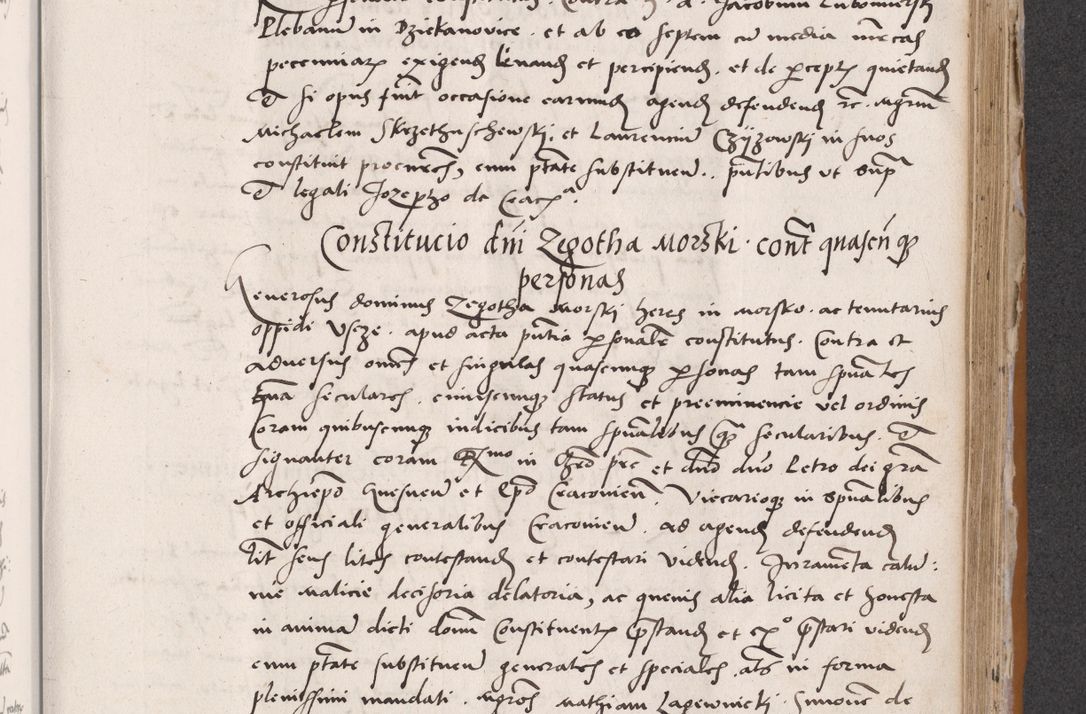 Plebanum in Dziekanovice . et ab eo septem cum media mrcas
pecuniarz exigend levand et percipiend . et de percept quietand
Et si opus fuit occasione earund agend defendend rc. Mgrm
Michaelem Skrzethuschewskj, et Laurencium Czÿzowskj in suos
constituit procures, cum ptate substituen . pntibus ut sup
Et legali Jozepho de Crac
Constitucio dni Zegotha Morski . cont quascunque
personas
Generosus dominus Zegotha Morskj heres in Morsko . ac tenutarius
oppidi Usze . apud acta pntia personale constitutus . Contra et
adversus omes et singulas quascunque personas tam spuales
qua seculares . cuiuscunque status et preeminencie vel ordinis
Coram quibuscunque iudicibus tam spualibus qua secularibus . Et
signanter coram Rmo in Chro pre et dno dno Petro dei gra
Archiepo Gnesnen et Epo Cracovien . Vicarioque in spualibus
et officiali generalibus Cracovien . ad agend defendend
lit seu lites contestand et contestari vidend . Juramenta calu:
nie malicie decisoria delatoria, ac quevis alia licita et honesta
in animam dicti domini Constituent prestand et ex o prestari vidend
cum ptate substituen generales et speciales . als in forma
plenissimi mandati . Mgros Mathiam Lagewnicki . Simone de